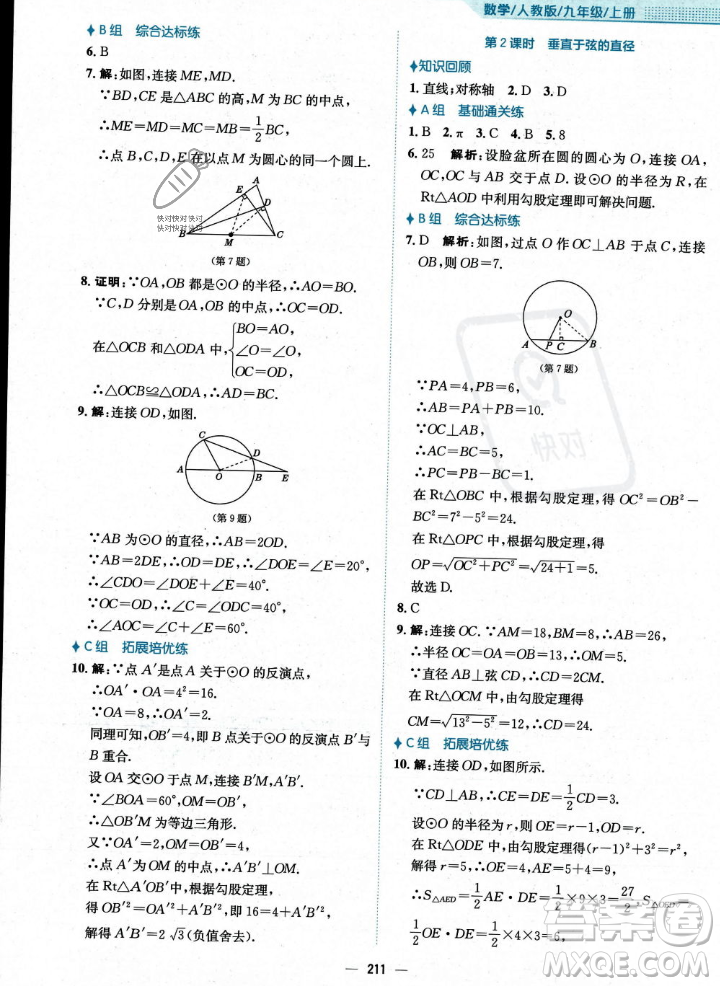 数学/人教版/九年级/上册
B组 综合达标练
6. B
7. 解:如图,连接 ME,MD.
∵BD,CE 是△ABC 的高,M 为 BC 的中点,
∴ME=MD=MC=MB=1/2 BC.
∴点 B,C,D,E 在以点 M 为圆心的同一个圆上.
E A D B M C
快对快对快对
快对快对
(第 7 题)
8. 证明:∵OA,OB 都是⊙O 的半径,∴AO=BO.
∵C,D 分别是 OA,OB 的中点,∴OC=OD.
在△OCB 和△ODA 中,{BO=AO,
∠O=∠O,
OC=OD,
∴△OCB≌△ODA.∴AD=BC.
9. 解:连接 OD,如图.
C D A O B E
(第 9 题)
∵AB 为⊙O 的直径,∴AB=2OD.
∵AB=2DE,∴OD=DE,∴∠DOE=∠E=20°,
∴∠CDO=∠DOE+∠E=40°.
∵OC=OD,∴∠C=∠ODC=40°,
∴∠AOC=∠C+∠E=60°.
C组 拓展培优练
10. 解:∵点 A′是点 A 关于⊙O 的反演点,
∴OA′·OA=4²=16.
∵OA=8,∴OA′=2.
同理可知,OB′=4,即 B 点关于⊙O 的反演点 B′与
B 重合.
设 OA 交⊙O 于点 M,连接 B′M,A′B′.
∵∠BOA=60°,OM=OB′,
∴△OB′M 为等边三角形.
又∵OA′=2,OM=4,
∴点 A′为 OM 的中点,∴A′B′⊥OM.
在 Rt△OA′B′中,由勾股定理,
得 OB′²=OA′²+A′B′²,即 16=4+A′B′²,
解得 A′B′=2√3(负值舍去).
第 2 课时 垂直于弦的直径
知识回顾
1. 直线;对称轴 2. D 3. D
A组 基础通关练
1. B 2. π 3. C 4. B 5. 8
6. 25 解析:设脸盆所在圆的圆心为 O,连接 OA,
OC,OC 与 AB 交于点 D.设⊙O 的半径为 R,在
Rt△AOD 中利用勾股定理即可解决问题.
B组 综合达标练
7. D 解析:如图,过点 O 作 OC⊥AB 于点 C,连接
OB,则 OB=7.
O A P C B
(第 7 题)
∵PA=4,PB=6,
∴AB=PA+PB=10.
∵OC⊥AB,
∴AC=BC=5,
∴PC=PB-BC=1.
在 Rt△OBC 中,根据勾股定理,得 OC²=OB²-
BC²=7²-5²=24.
在 Rt△OPC 中,根据勾股定理,得
OP=√OC²+PC²=√24+1=5.
故选 D.
快对
8. C
9. 解:连接 OC.∵AM=18,BM=8,∴AB=26,
∴OC=OB=13,∴OM=13-8=5.
∵直径 AB⊥弦 CD,∴CD=2CM.
在 Rt△OCM 中,由勾股定理得
CM=√13²-5²=12,∴CD=24.
C组 拓展培优练
10. 解:连接 OD,如图所示.
∵CD⊥AB,∴CE=DE=1/2 CD=3.
设⊙O 的半径为 r,则 OE=r-1,OD=r.
在 Rt△ODE 中,由勾股定理得(r-1)²+3²=r²,
解得 r=5.∴OE=4,∴AE=5+4=9,
∴S△AED=1/2 AE·DE=1/2×9×3=27/2,S△OED
=1/2 OE·DE=1/2×4×3=6.
答案圈
211